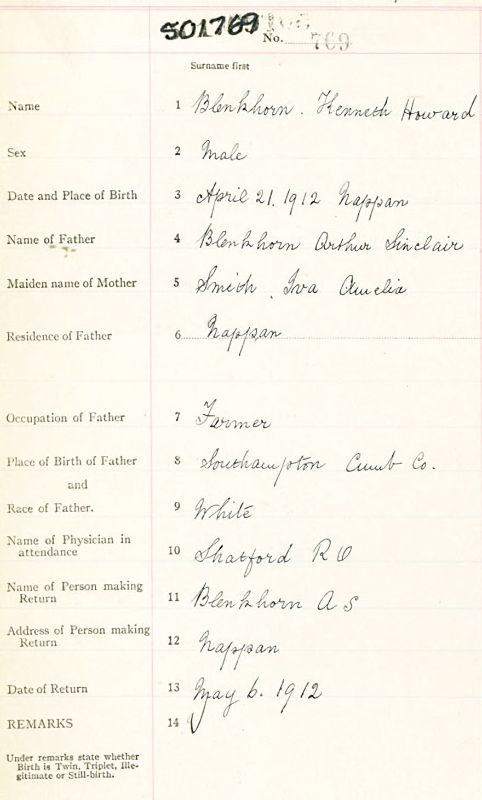 501769
No. 769
Surname first
Name 1 Blenkhorn. Kenneth Howard
Sex 2 Male
Date and Place of Birth 3 April 21. 1912 Nappan
Name of Father 4 Blenkhorn Arthur Sinclair
Maiden name of Mother 5 Smith, Iva Amelia
Residence of Father 6 Nappan
Occupation of Father 7 Farmer
Place of Birth of Father 8 Southampton Cumb Co.
and
Race of Father. 9 White
Name of Physician in
attendance 10 Shatford R O
Name of Person making
Return 11 Blenkhorn A S
Address of Person making
Return 12 Nappan
Date of Return 13 May 6. 1912
REMARKS 14
Under remarks state whether
Birth is Twin, Triplet, Ille-
gitimate or Still-birth.